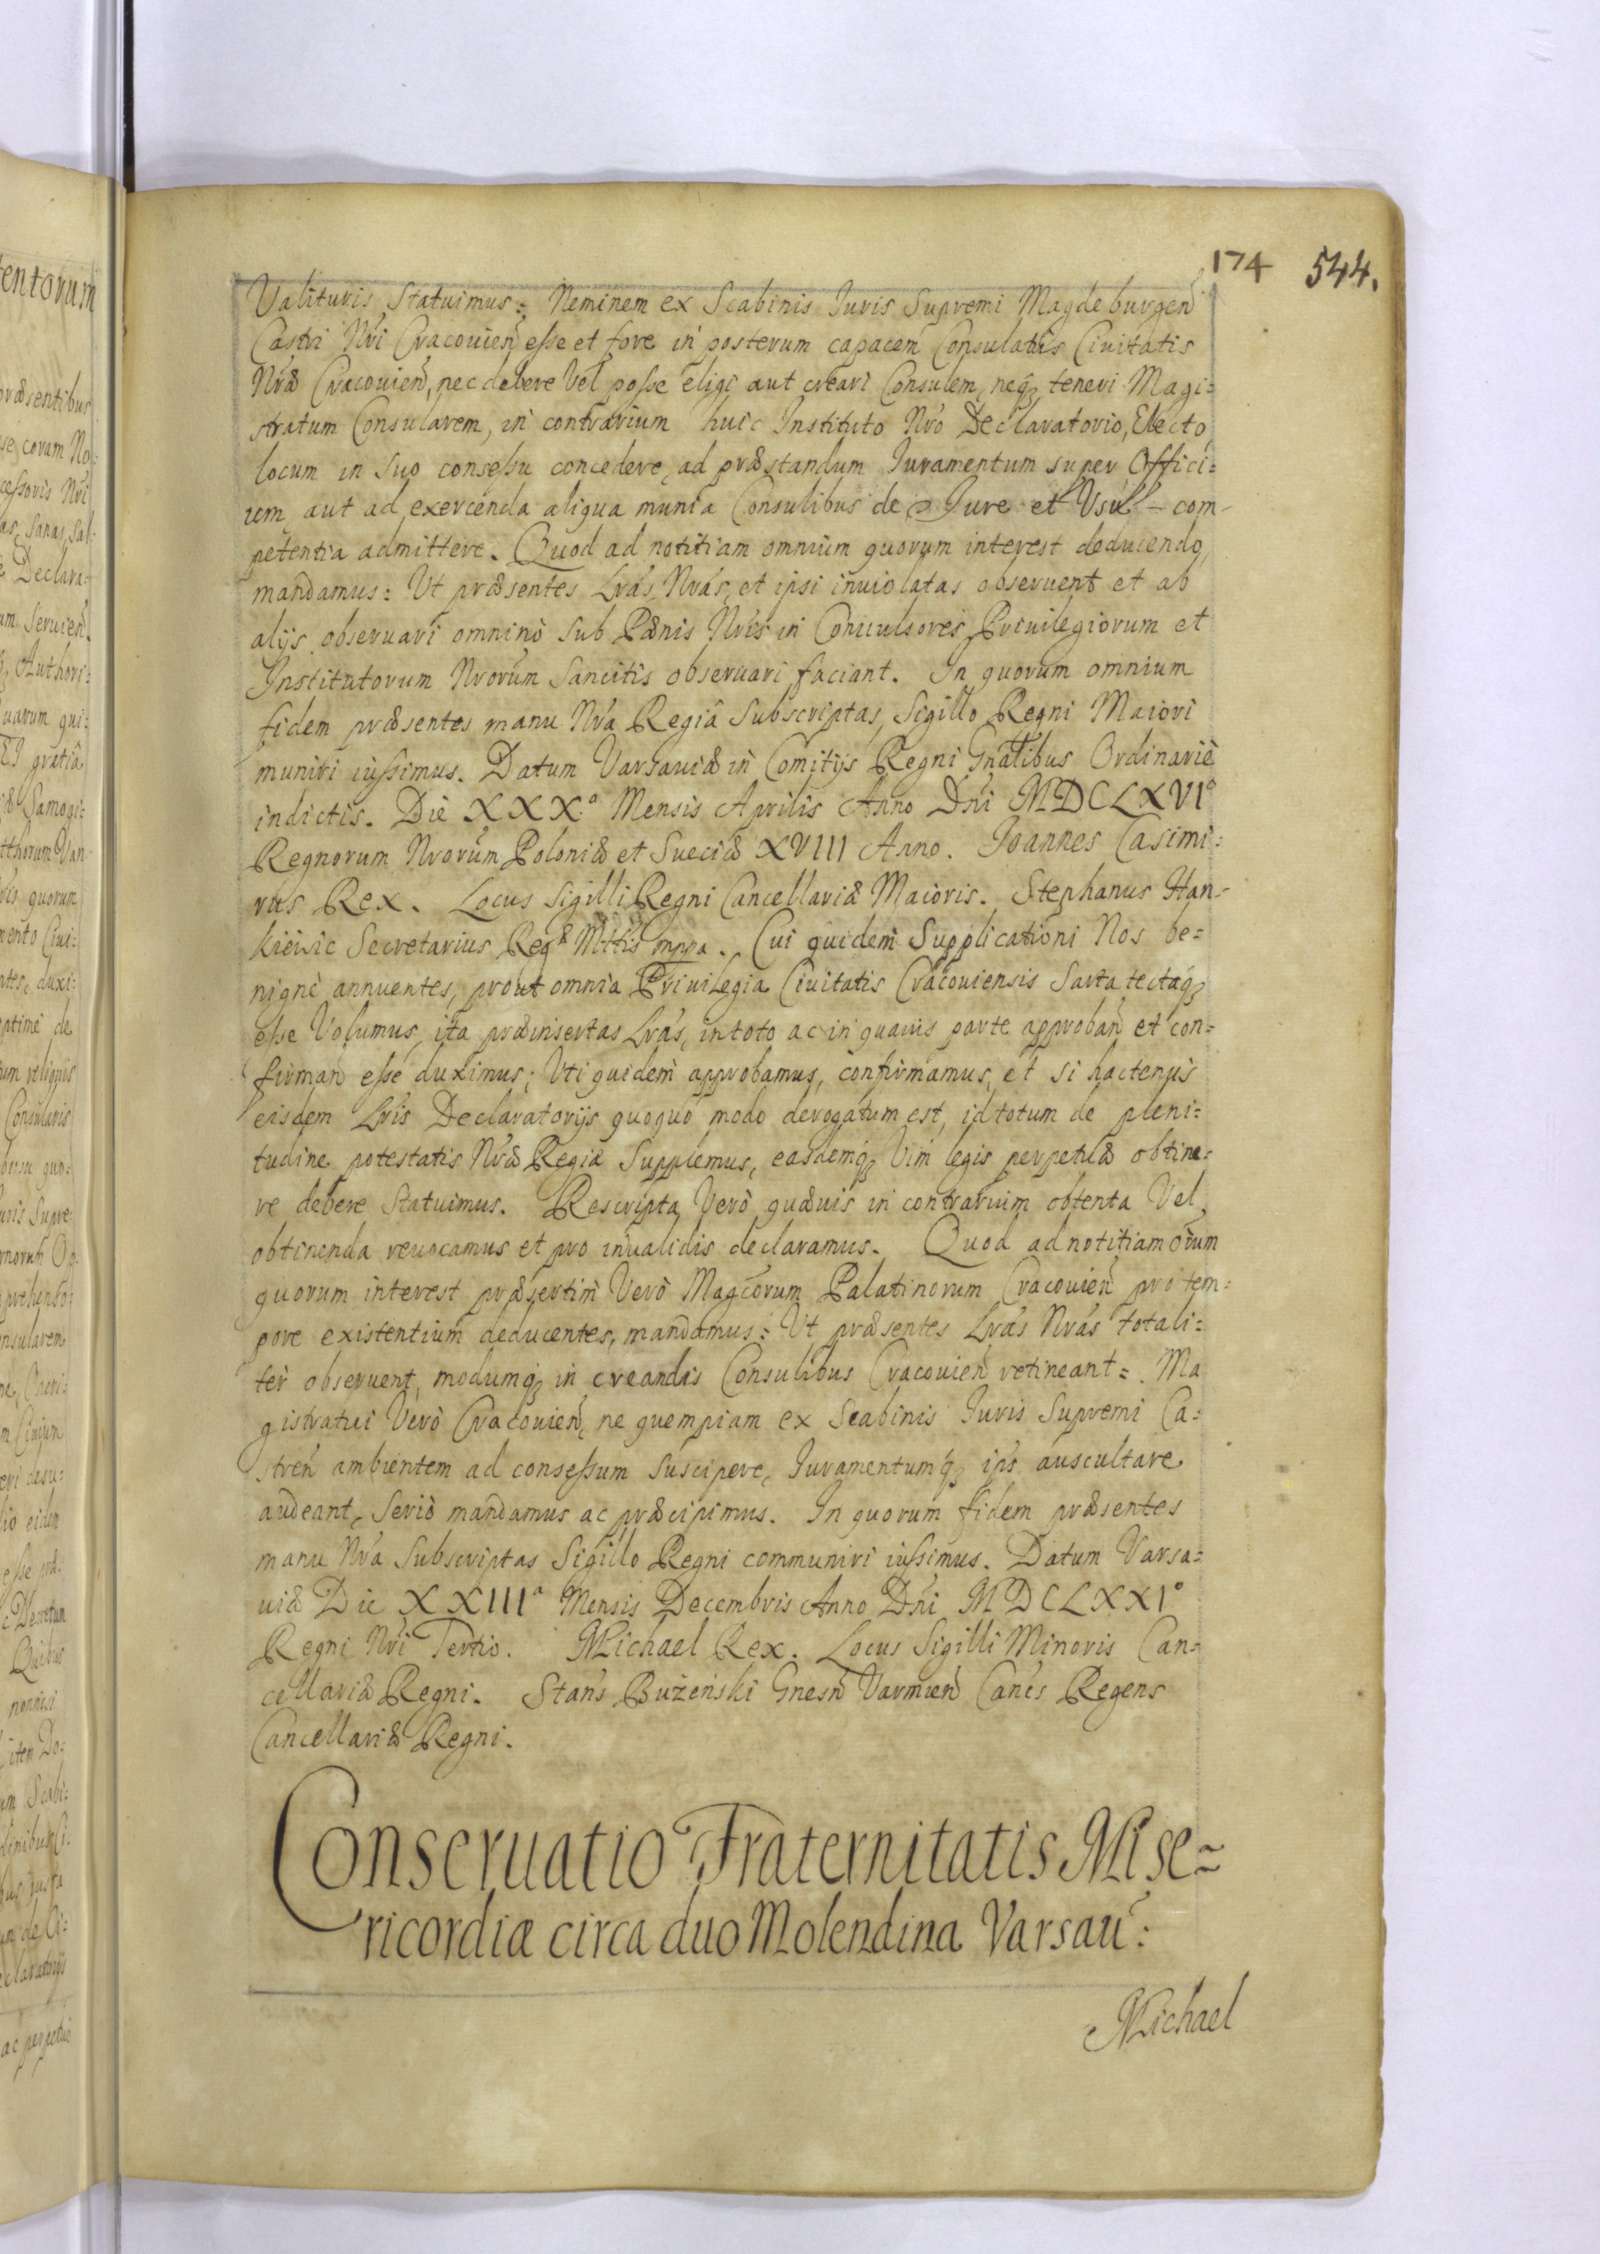 174 544.
Valituris Statuimus: Neminem ex Scabinis Iuris Supremi Magdeburgen
Castri Nri Cracouien esse et fore in posterum capacem Consulatus Ciuitatis
Nræ Cracouien, nec debere Vel posse eligi aut creari Consulem, neq teneri Magi=
stratum Consularem, in contrarium huic Instituto Nro Declaratorio, Electo
locum in Suo consessu concedere, ad præstandum Iuramentum super Offici=
um aut ad exercenda aliqua munia Consulibus de Iure et Vsu com-
petentia admittere. Quod ad notitiam omnium quorum interest deducendo,
mandamus: Ut præsentes Lras Nras, et ipsi inuiolatas obseruent et ab
alijs obseruari omninò Sub Pænis Nris in Conuulsores Priuilegiorum et
Institutorum Nrorum Sancitis obseruari faciant. In quorum omnium
fidem præsentes manu Nra Regiâ Subscriptas, Sigillo Regni Maiori
muniri iussimus. Datum Varsauiæ in Comitijs Regni Gnalibus Ordinariè
indictis. Die XXX.ª Mensis Aprilis Anno Dni MDCLXVIº
Regnorum Nrorum Poloniæ et Sueciæ XVIII Anno. Ioannes Casimi=
rus Rex. Locus Sigilli Regni Cancellariæ Maioris. Stephanus Han-
kiewic Secretarius Regæ Mttis mppa. Cui quidem Supplicationi Nos be=
nignè annuentes, prout omnia Priuilegia Ciuitatis Cracouiensis Sarta tectaq
esse Volumus, ita præinsertas Lras, in toto ac in quauis parte approban et con=
firman esse duximus; Vti quidem approbamus, confirmamus, et si hactenus
eisdem Lris Declaratorijs quoquo modo derogatum est, id totum de pleni=
tudine potestatis Nræ Regiæ Supplemus, easdemq Vim legis perpetuæ obtine=
re debere Statuimus. Rescripta Verò quæuis in contrarium obtenta Vel
obtinenda reuocamus et pro inualidis declaramus. Quod ad notitiam oium
quorum interest præsertim Verò Magcorum Palatinorum Cracouien pro tem=
pore existentium deducentes, mandamus: Ut præsentes Lras Nras totali=
ter obseruent, modumq in creandis Consulibus Cracouien retineant=. Ma
gistratui Verò Cracouien, ne quempiam ex Scabinis Iuris Supremi Ca=
stren ambientem ad consessum Suscipere, Iuramentumq ips auscultare
audeant, Seriò mandamus ac præcipimus. In quorum fidem præsentes
manu Nra Subscriptas Sigillo Regni communiri iussimus. Datum Varsa=
uiæ Die XXIIIª Mensis Decembris Anno Dni MDCLXXIº
Regni Nri Tertio. Michael Rex. Locus Sigilli Minoris Can=
cellariæ Regni. Stans Bużeński Gnesn Varmien Cancs Regens
Cancellariæ Regni.
Conseruatio Fraternitatis Mise~
ricordiæ circa duo Molendina Varsau:
Michael